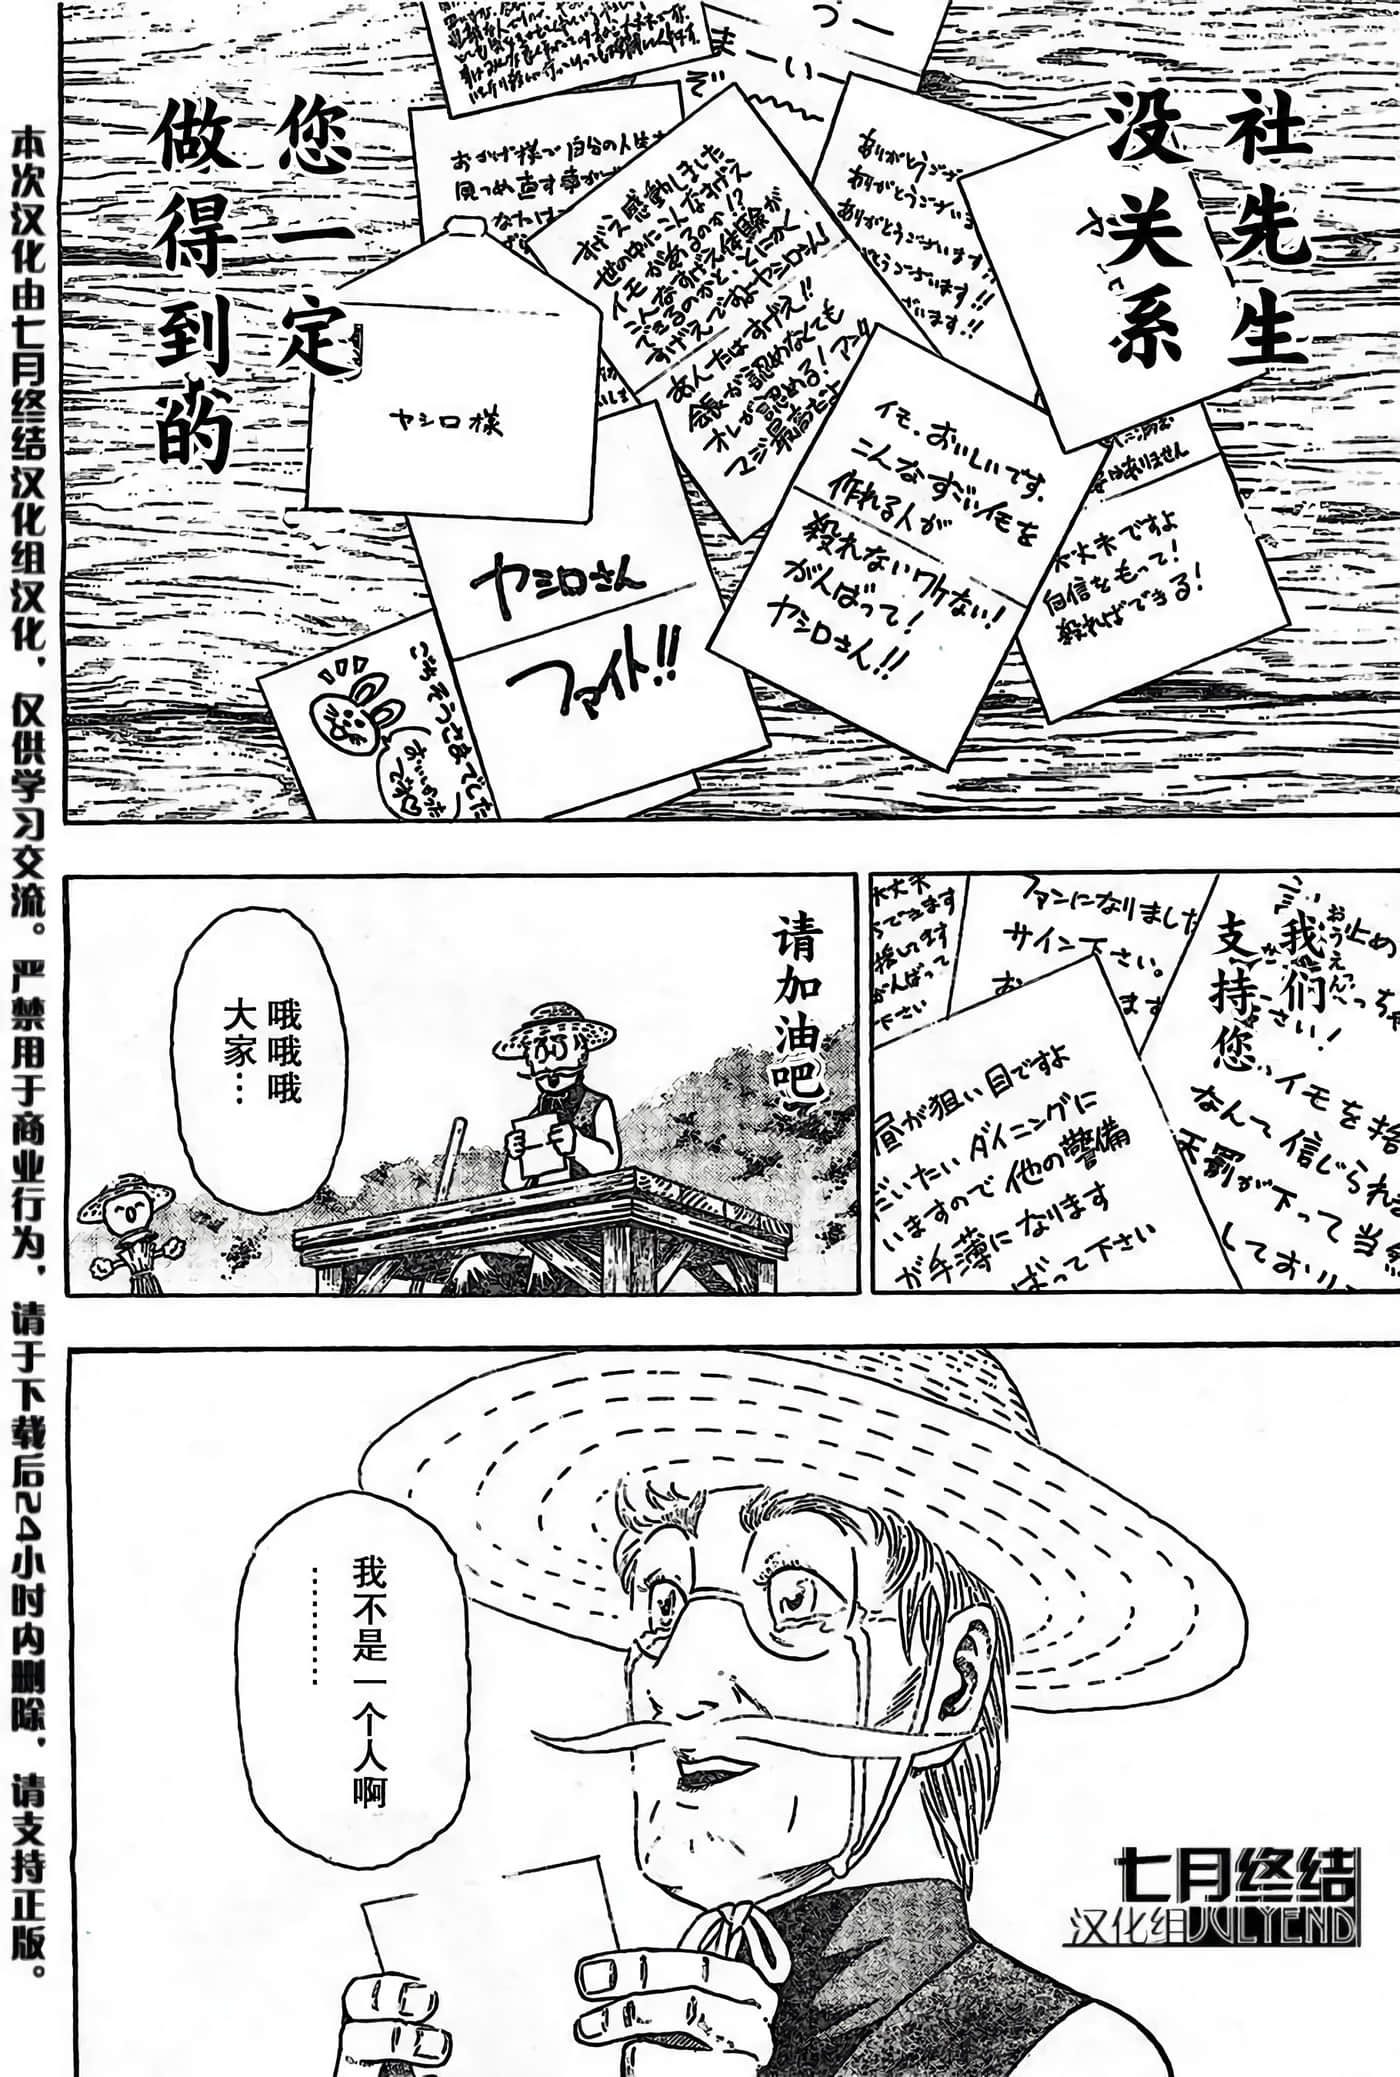 社先生
没关系
您一定
做得到的
ありがとうござ
ありがとうございま
ありがとうございます!
とうございます!!
ざいます!!
すげえ感動しました
世の中にこんなすげえ
イモがあるのか!?
こんなすげえ体験が
できるのかと、とにかく
すげえですよヤシロさん!
あんたはすげえ!!
会長が認めなくても
オレが認める!
マジ最高だよ
おかげ様で自分の人生
見つめ直す事が
ヤシロ様
イモ、おいしいです。
こんなすごいイモを
作れる人が
殺れないワケない!
がんばって!
ヤシロさん!!
はありません
大丈夫ですよ
自信をもって!
殺ればできる!
ヤシロさん
ファイト!!
ごちそうさまでした
おいしかったよ
我们
支持您
おうえん
止め
さい!
イモを捨
なんて信じられ
天罰が下って当然
しており
ファンになりました
サイン下さい。
ます
大丈夫
できます
援してます
がんばって
下さい
昼が狙い目ですよ
だいたいダイニングに
いますので他の警備
が手薄になります
ばって下さい
请加油吧
哦哦哦
大家…
我不是一个人啊
………
七月终结
汉化组JULYEND
本次汉化由七月终结汉化组汉化，仅供学习交流。严禁用于商业行为，请于下载后24小时内删除，请支持正版。